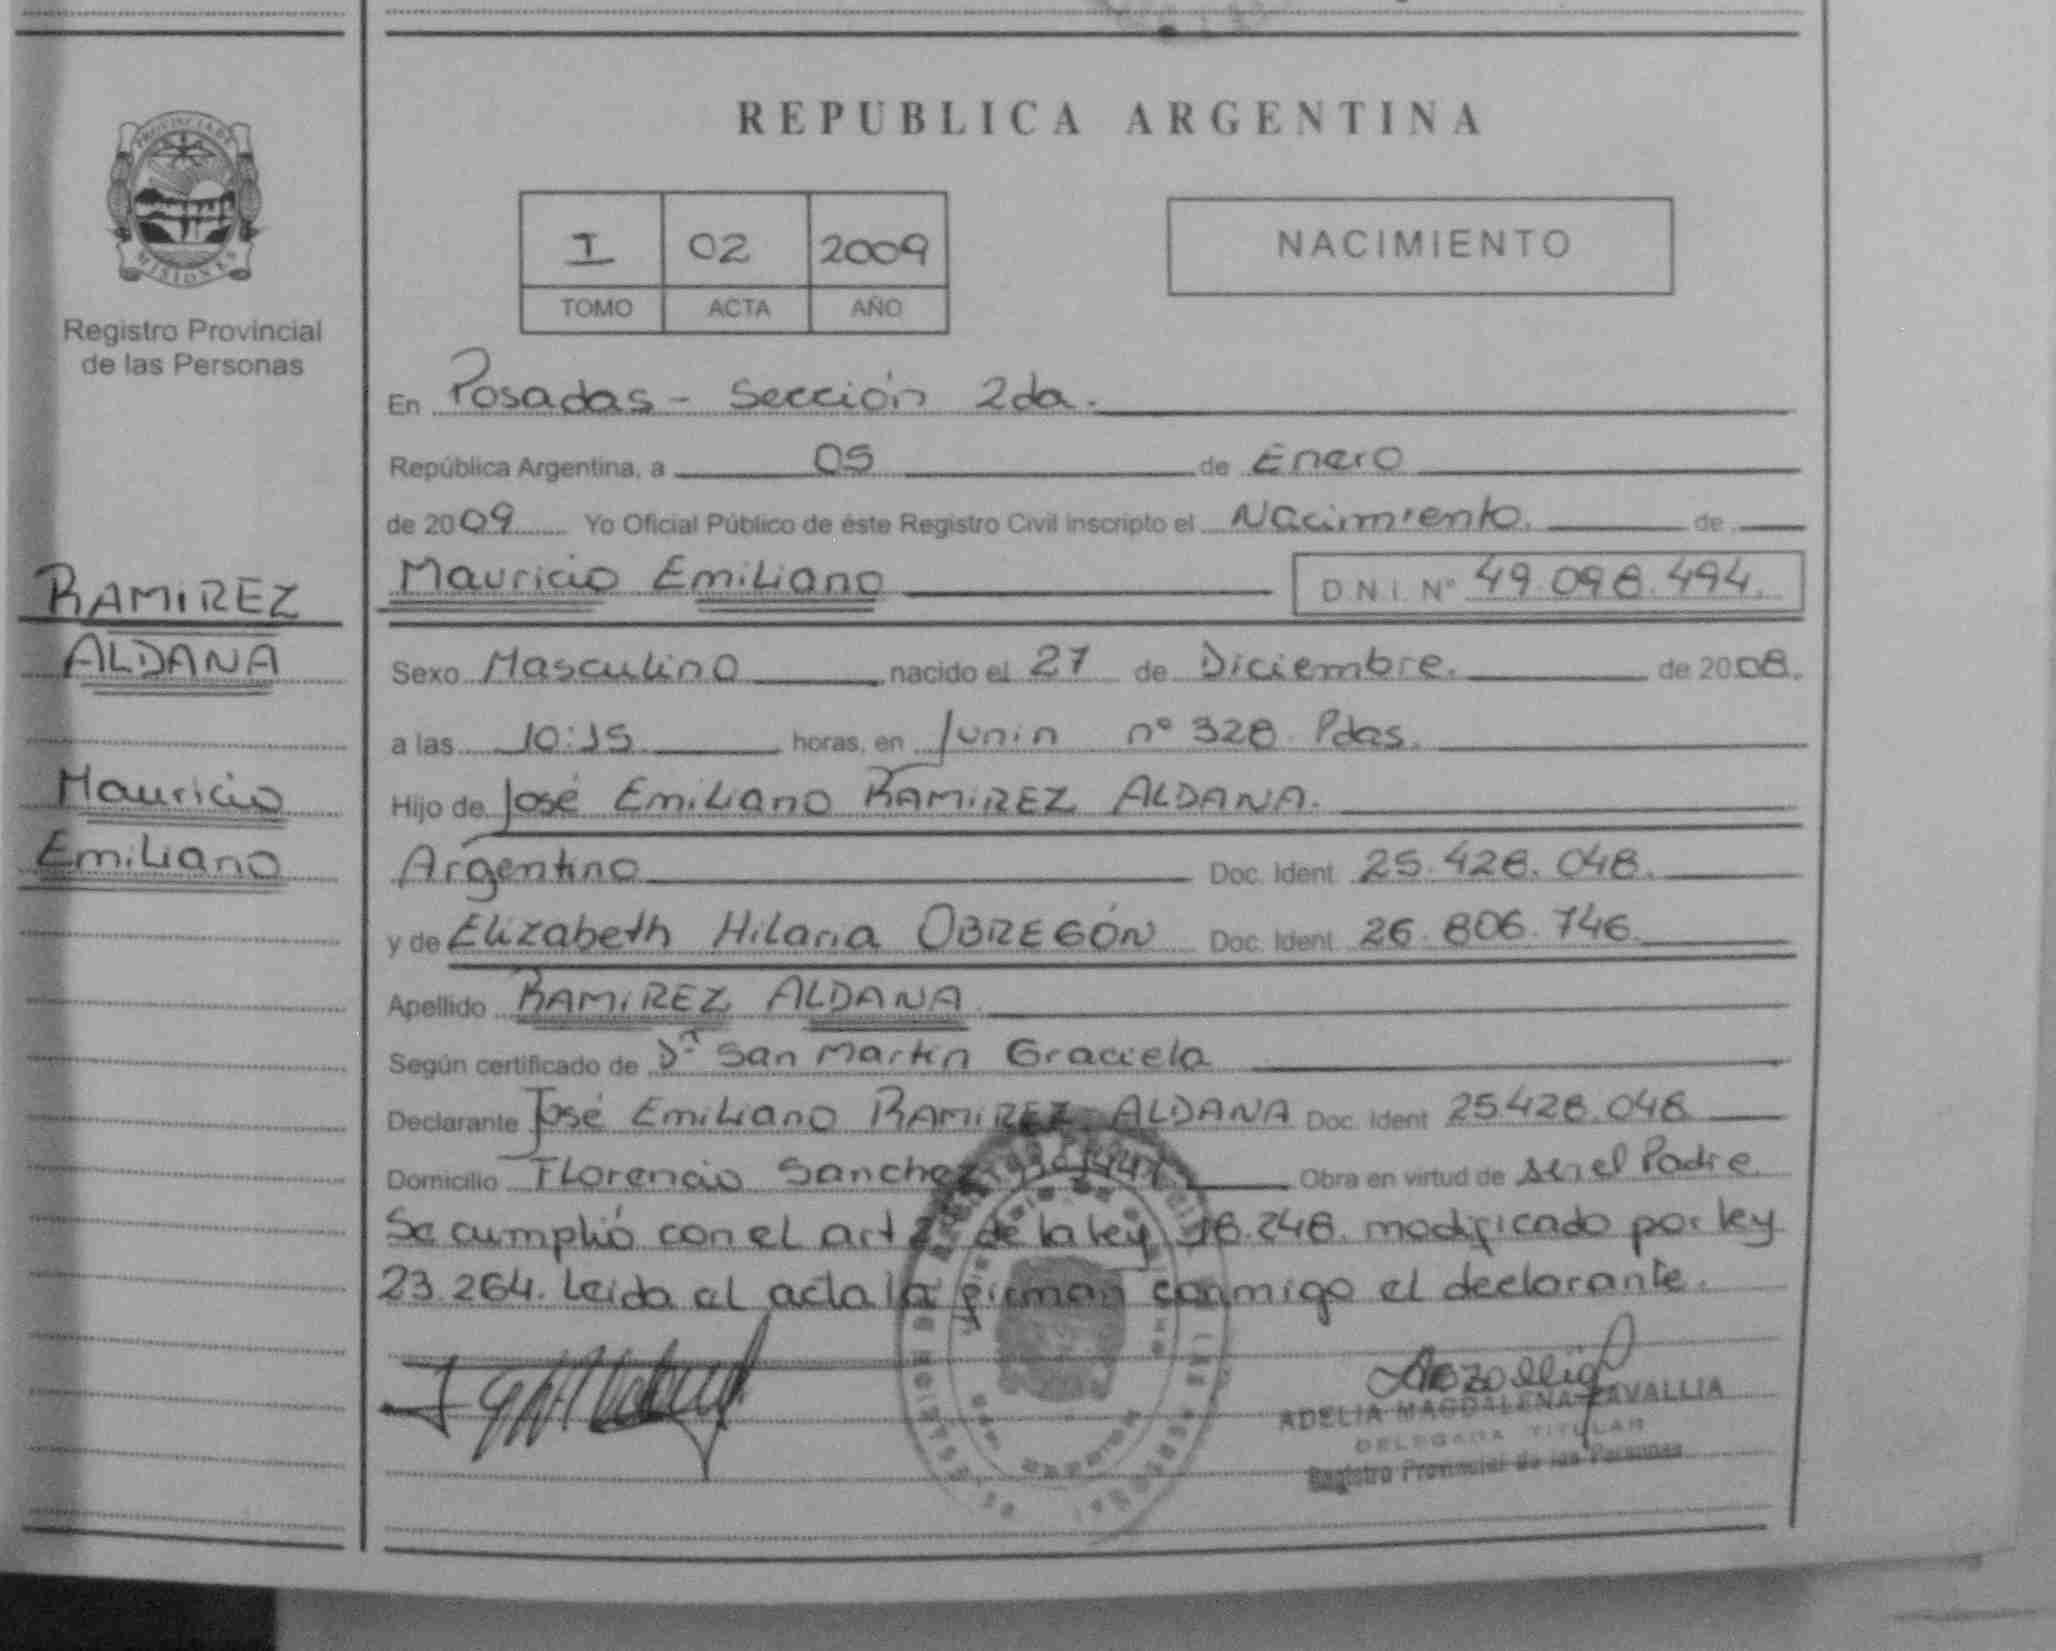 REPUBLICA ARGENTINA
PROVINCIA DE
MISIONES
Registro Provincial
de las Personas
I 02 2009
TOMO ACTA AÑO
NACIMIENTO
En Posadas - Sección 2da.
República Argentina, a 05 de Enero
de 2009 Yo Oficial Público de éste Registro Civil inscripto el Nacimiento. de
Mauricio Emiliano D.N.I. Nº 49.098.494.
RAMIREZ
ALDANA
Mauricio
Emiliano
Sexo Masculino nacido el 27 de Diciembre. de 2008.
a las 10:15 horas, en Junin nº 328 Pdas.
Hijo de José Emiliano RAMIREZ ALDANA.
Argentino Doc. Ident 25.428.048.
y de Elizabeth Hilaria OBREGÓN Doc. Ident 26.806.746.
Apellido RAMIREZ ALDANA.
Según certificado de Dra San Martin Graciela
Declarante José Emiliano RAMIREZ ALDANA Doc. Ident 25.428.048
Domicilio Florencio Sanchez Obra en virtud de ser el Padre.
Se cumplió con el art 2 de la ley 18.248. modificado por ley
23.264. Leida el acta la firman conmigo el declarante.
ADELIA MAGDALENA ZAVALLIA
DELEGADA TITULAR
Registro Provincial de las Personas